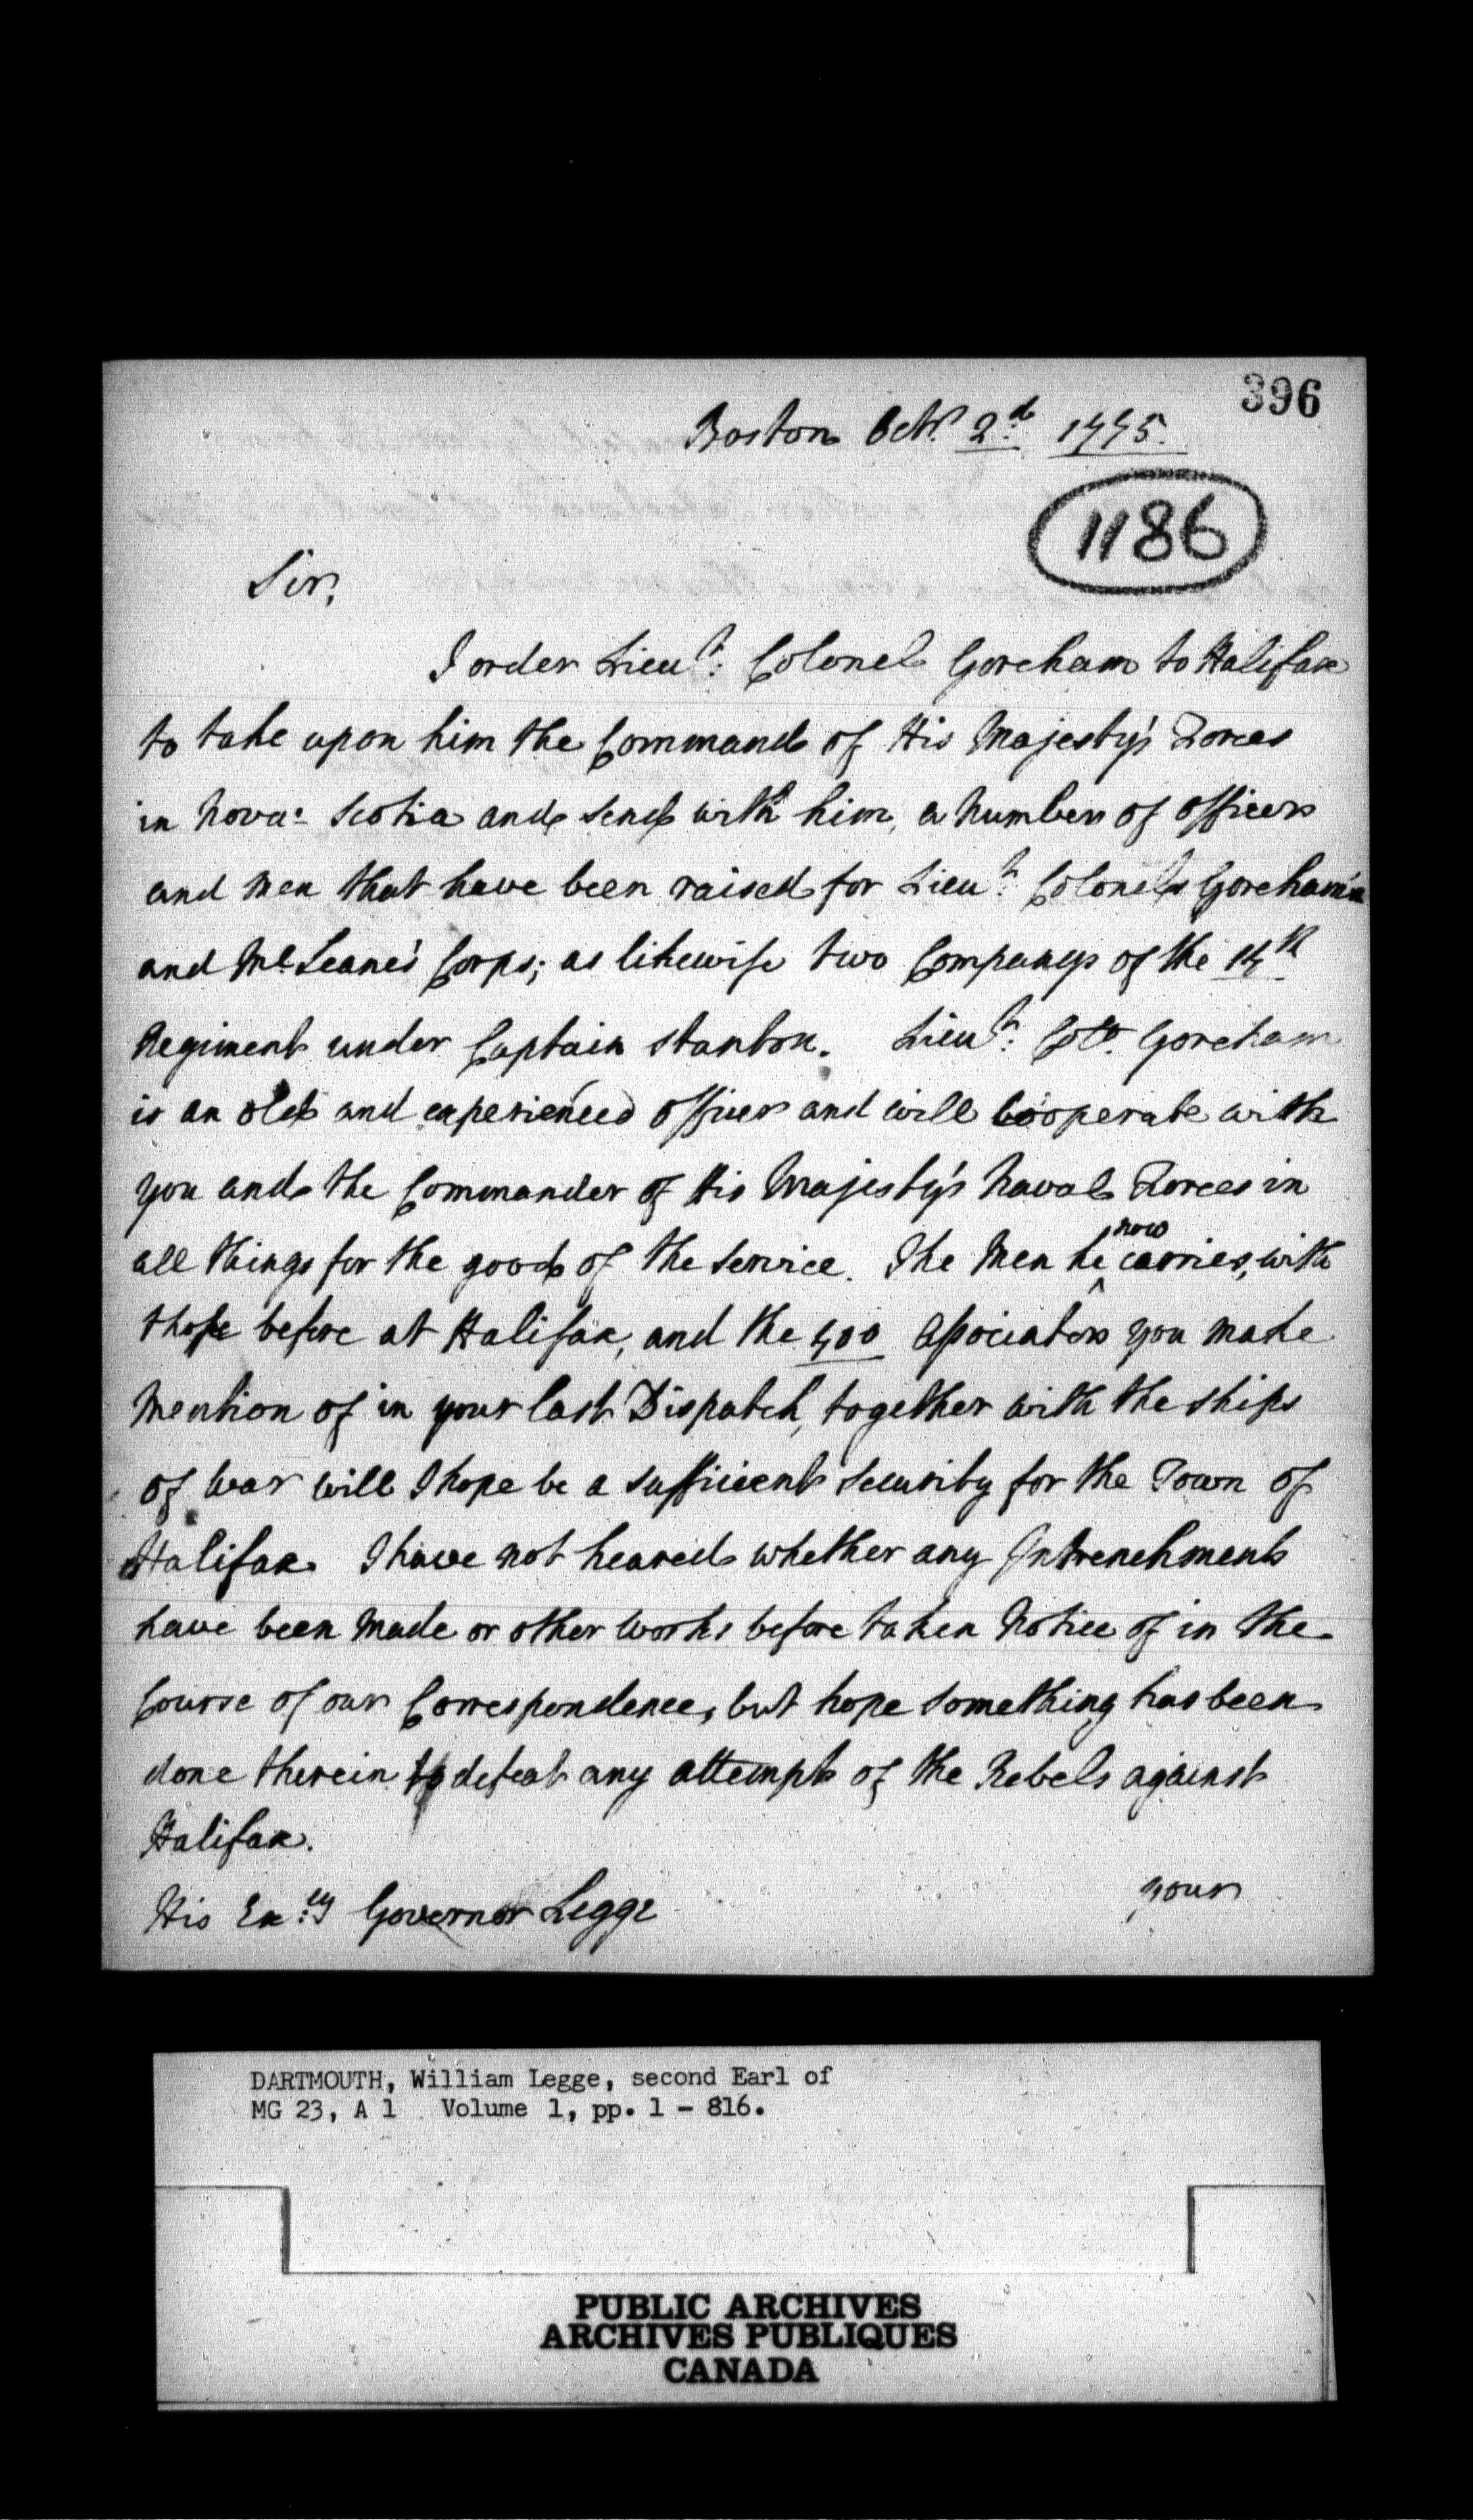 396
Boston Octr. 2.d 1775.
1186
Sir,
I order Lieut: Colonel Goreham to Halifax
to take upon him the Command of His Majesty's Forces
in Nova-Scotia and send with him, a Number of officers
and Men that have been raised for Lieut: Colonels Goreham's
and McLeane's Corps; as likewise two Companys of the 14th
Regiment under Captain Stanton. Lieut: Coll. Goreham
is an old and experienced officer and will cooperate with
you and the Commander of His Majesty's Naval Forces in
all things for the good of the Service. The Men he now carries, with
those before at Halifax, and the 400 Associators you make
Mention of in your last Dispatch, together with the Ships
of War will I hope be a sufficient Security for the Town of
Halifax. I have not heared whether any Intrenchments
have been Made or other Works before taken Notice of in the
Course of our Correspondence, but hope something has been
done therein to defeat any attempts of the Rebels against
Halifax.
your
His Ex:cy Governor Legge
DARTMOUTH, William Legge, second Earl of
MG 23, A 1 Volume 1, pp. 1 - 816.
PUBLIC ARCHIVES
ARCHIVES PUBLIQUES
CANADA